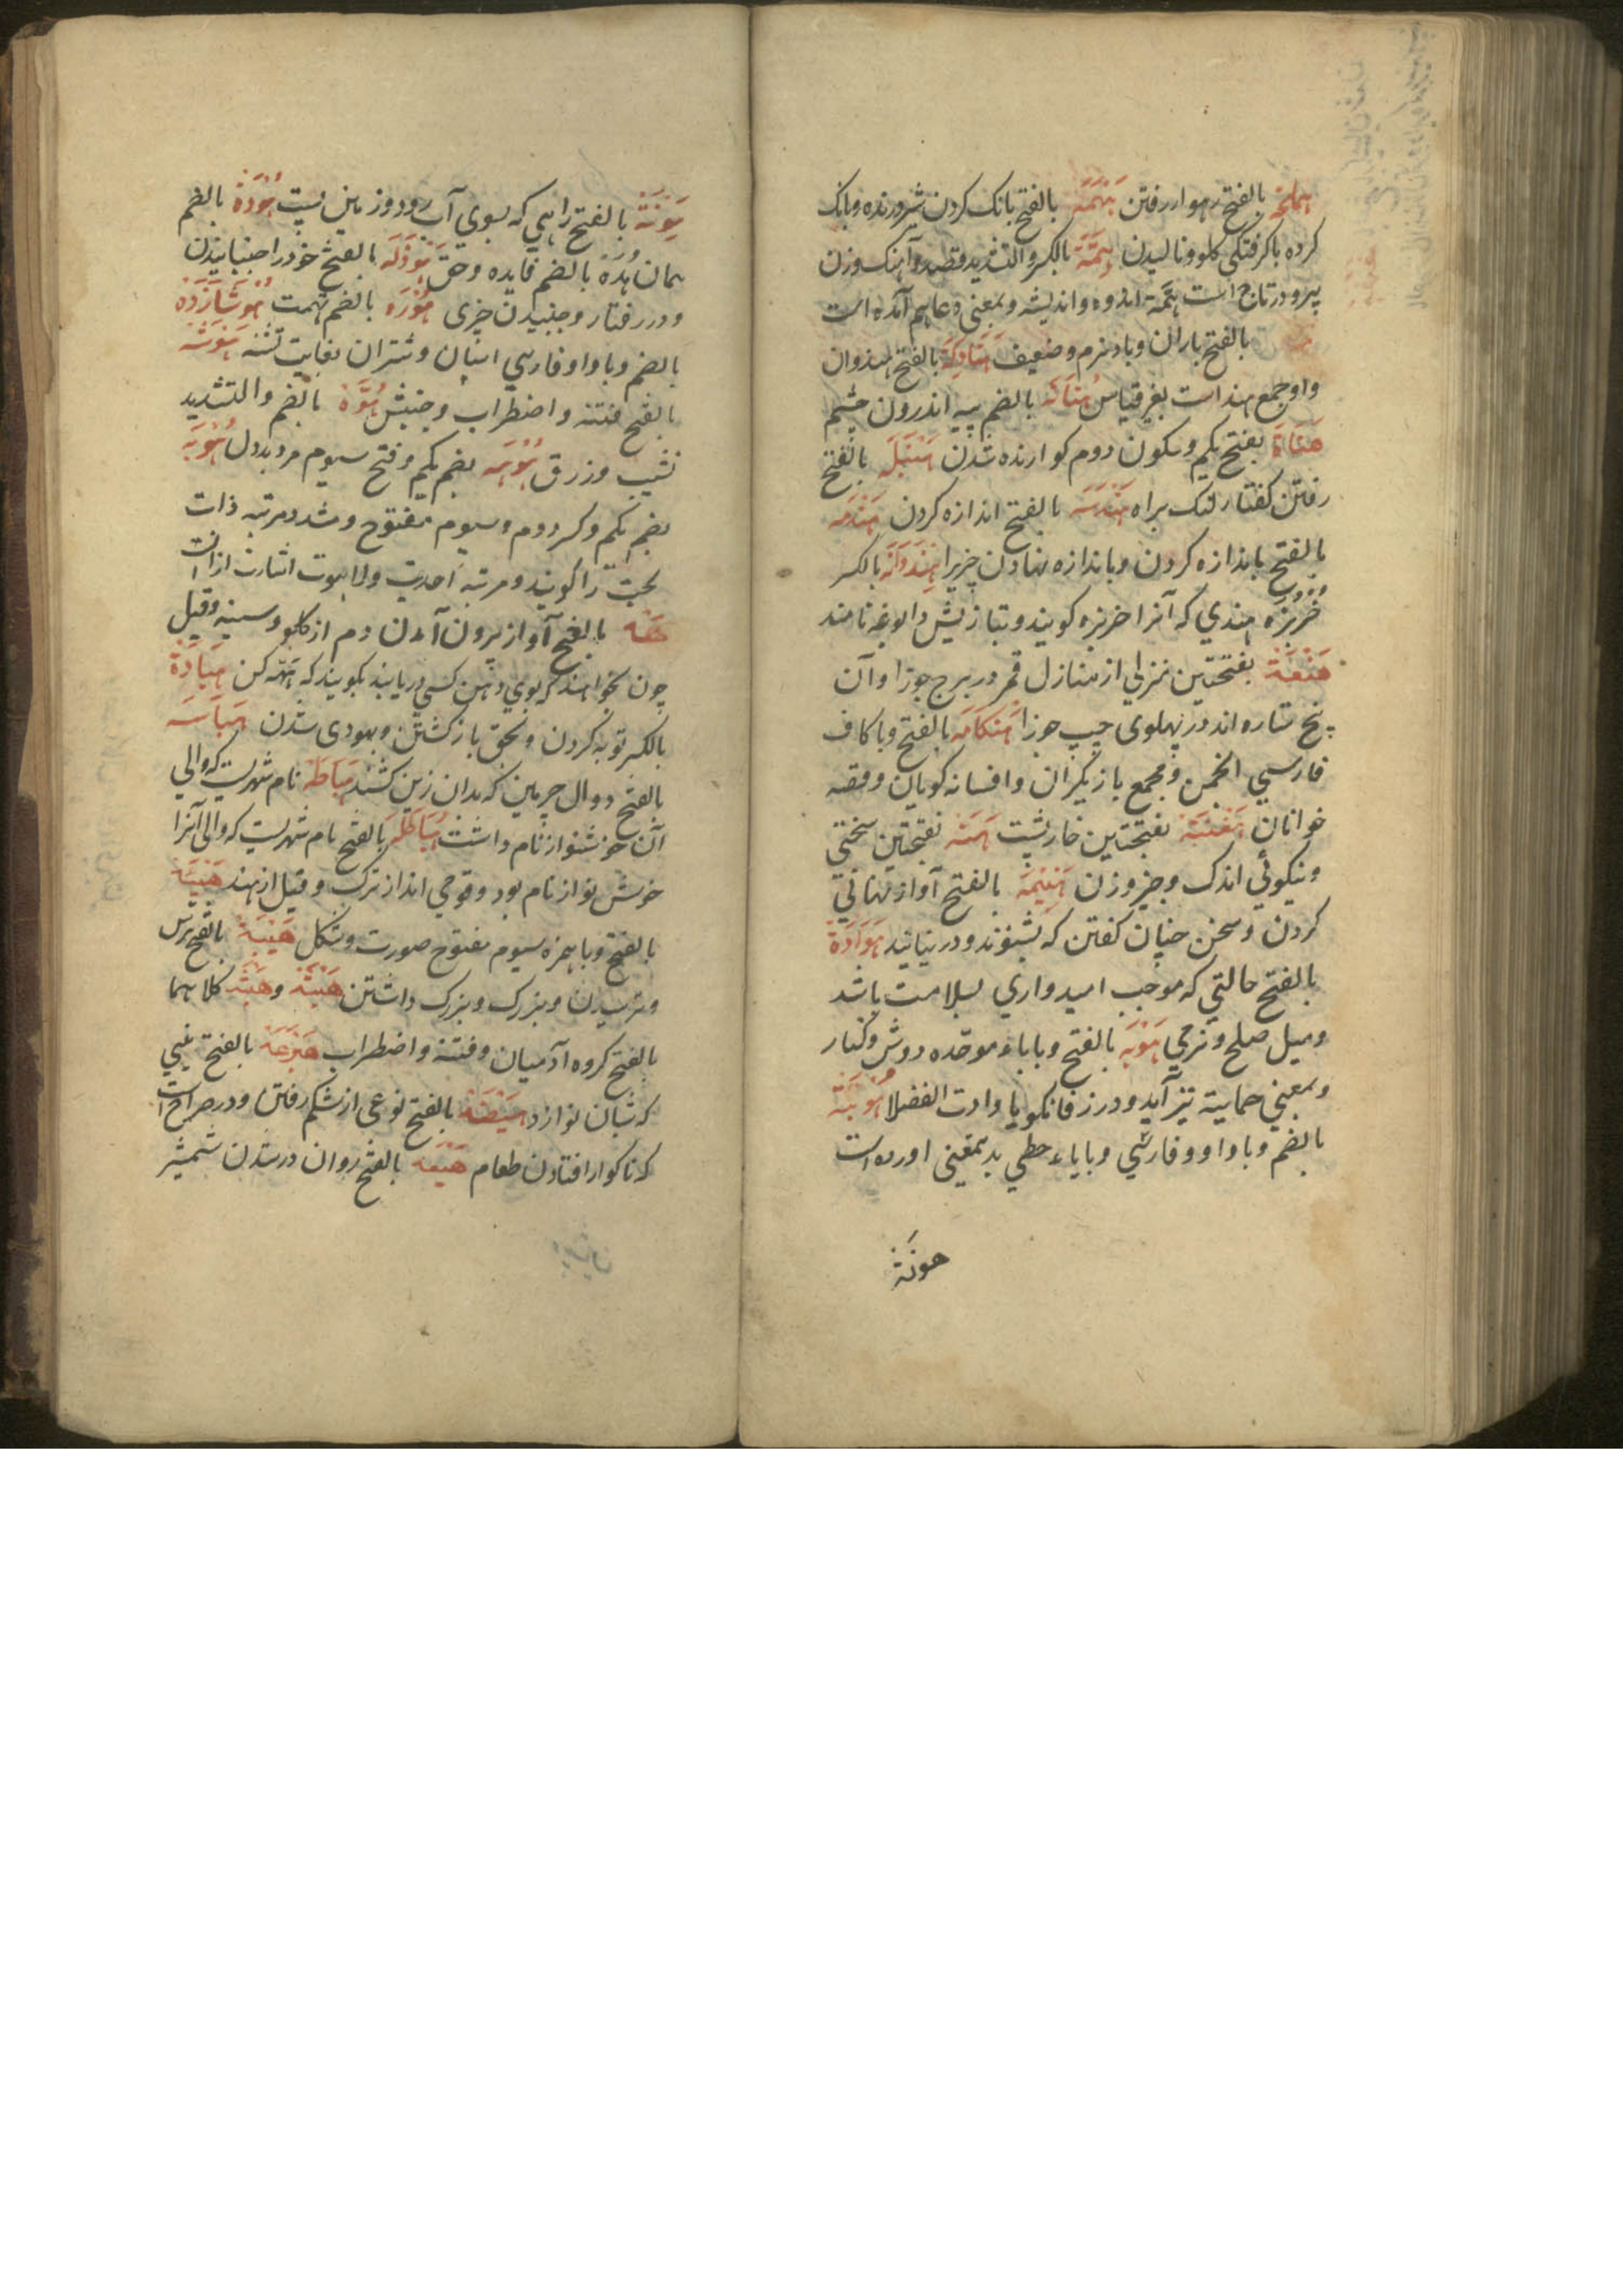 هملجة بالفتح رهوار رفتن همهمة بالفتح بانک کردن شیر درنده و بانک
کرده با کرفتکی کلو و نالیدن همة بالکسر والتشدید قصد و آهنک و زن
پیر و در تاج است همة اندوه و اندیشه و بمعنی دعا هم آمده است
بالفتح باران و باد نرم و ضعیف هنادکة بالفتح هندوان
و او جمع هند است بغیر قیاس هنانة بالضم پیه اندرون چشم
بفتح یکم و سکون دوم کوارنده شدن هنبلة بالفتح
رفتن کفتار لنک براه هندسه بالفتح اندازه کردن هندمه
بالفتح باندازه کردن و باندازه نهادن چیزیرا هندوانه بالکسر
خربزه هندی که آنرا خربزه کویند و بتازیش دابوغه نامند
هنعة بفتحتین منزلی از منازل قمر در برج جوزا و آن
پنج ستاره اند در پهلوی چپ جوزا هنکامه بالفتح و با کاف
فارسی انجمن و مجمع بازیکران و افسانه کویان و قصه
خوانان بفتحتین خارپشت هنة بفتحتین سختی
و نیکوئی اندک و چیز و زن هنیمة بالفتح آواز نهانی
کردن و سخن چنان کفتن که بشنوند و در نیابند هوادة
بالفتح حالتی که موجب امیدواری بسلامت باشد
و میل صلح و نرمی هوبه بالفتح و با باء موحده دوش و کنار
و بمعنی حمایة نیز آید و در زفانکویا و ادات الفضلا
بالضم و با واو و فارسی و با یاء حطی بدینمعنی آورده است
هونة
هونة بالفتح راهی که بسوی آب رود و زمین پست هودة بالضم
همان هدة بالضم فایده و حق هوذلة بالفتح خود را جنبانیدن
و در رفتار و جنبیدن چیزی هورة بالضم تهمت هوشازده
بالضم و با واو فارسی اسپان و شتران بغایت تشنه هوشة
بالفتح فتنه و اضطراب و جنبش هوة بالضم والتشدید
نشیب و زرق هوهه بضم یکم و فتح سیوم مرد بددل هویة
بضم یکم و کسر دوم و سیوم مفتوح و مشدد مرتبه ذات
بحت را کویند و مرتبه احدیت و لاهوت اشارت از آن است
هفه بالفتح آواز بیرون آمدن دم از کلو و سینه و قیل
چون بخواهند که بوی دهن کسی دریابند بکویند که هه کن هیادة
بالکسر توبه کردن و بحق باز کشتن و یهودی شدن هیاسه
بالفتح دوال چرمین که بدان زین کشند هیاطه نام شهریست که والی
آن خوشنواز نام داشت هیاطله بالفتح نام شهریست که والی آنرا
خوش نواز نام بود و قومی اند از ترک و قیل از هند هیئة
بالفتح و با همزه سیوم مفتوح صورت و شکل هیبة بالفتح ترس
و ترسیدن و بزرک و بزرک داشتن هیثة و هیشة کلاهما
بالفتح کروه آدمیان و فتنه و اضطراب هیرعة بالفتح نیی
که شبان نوازد هیضة بالفتح نوعی از شکم رفتن و در صراح است
که ناکوار افتادن طعام هیعه بالفتح روان در شدن شمشیر